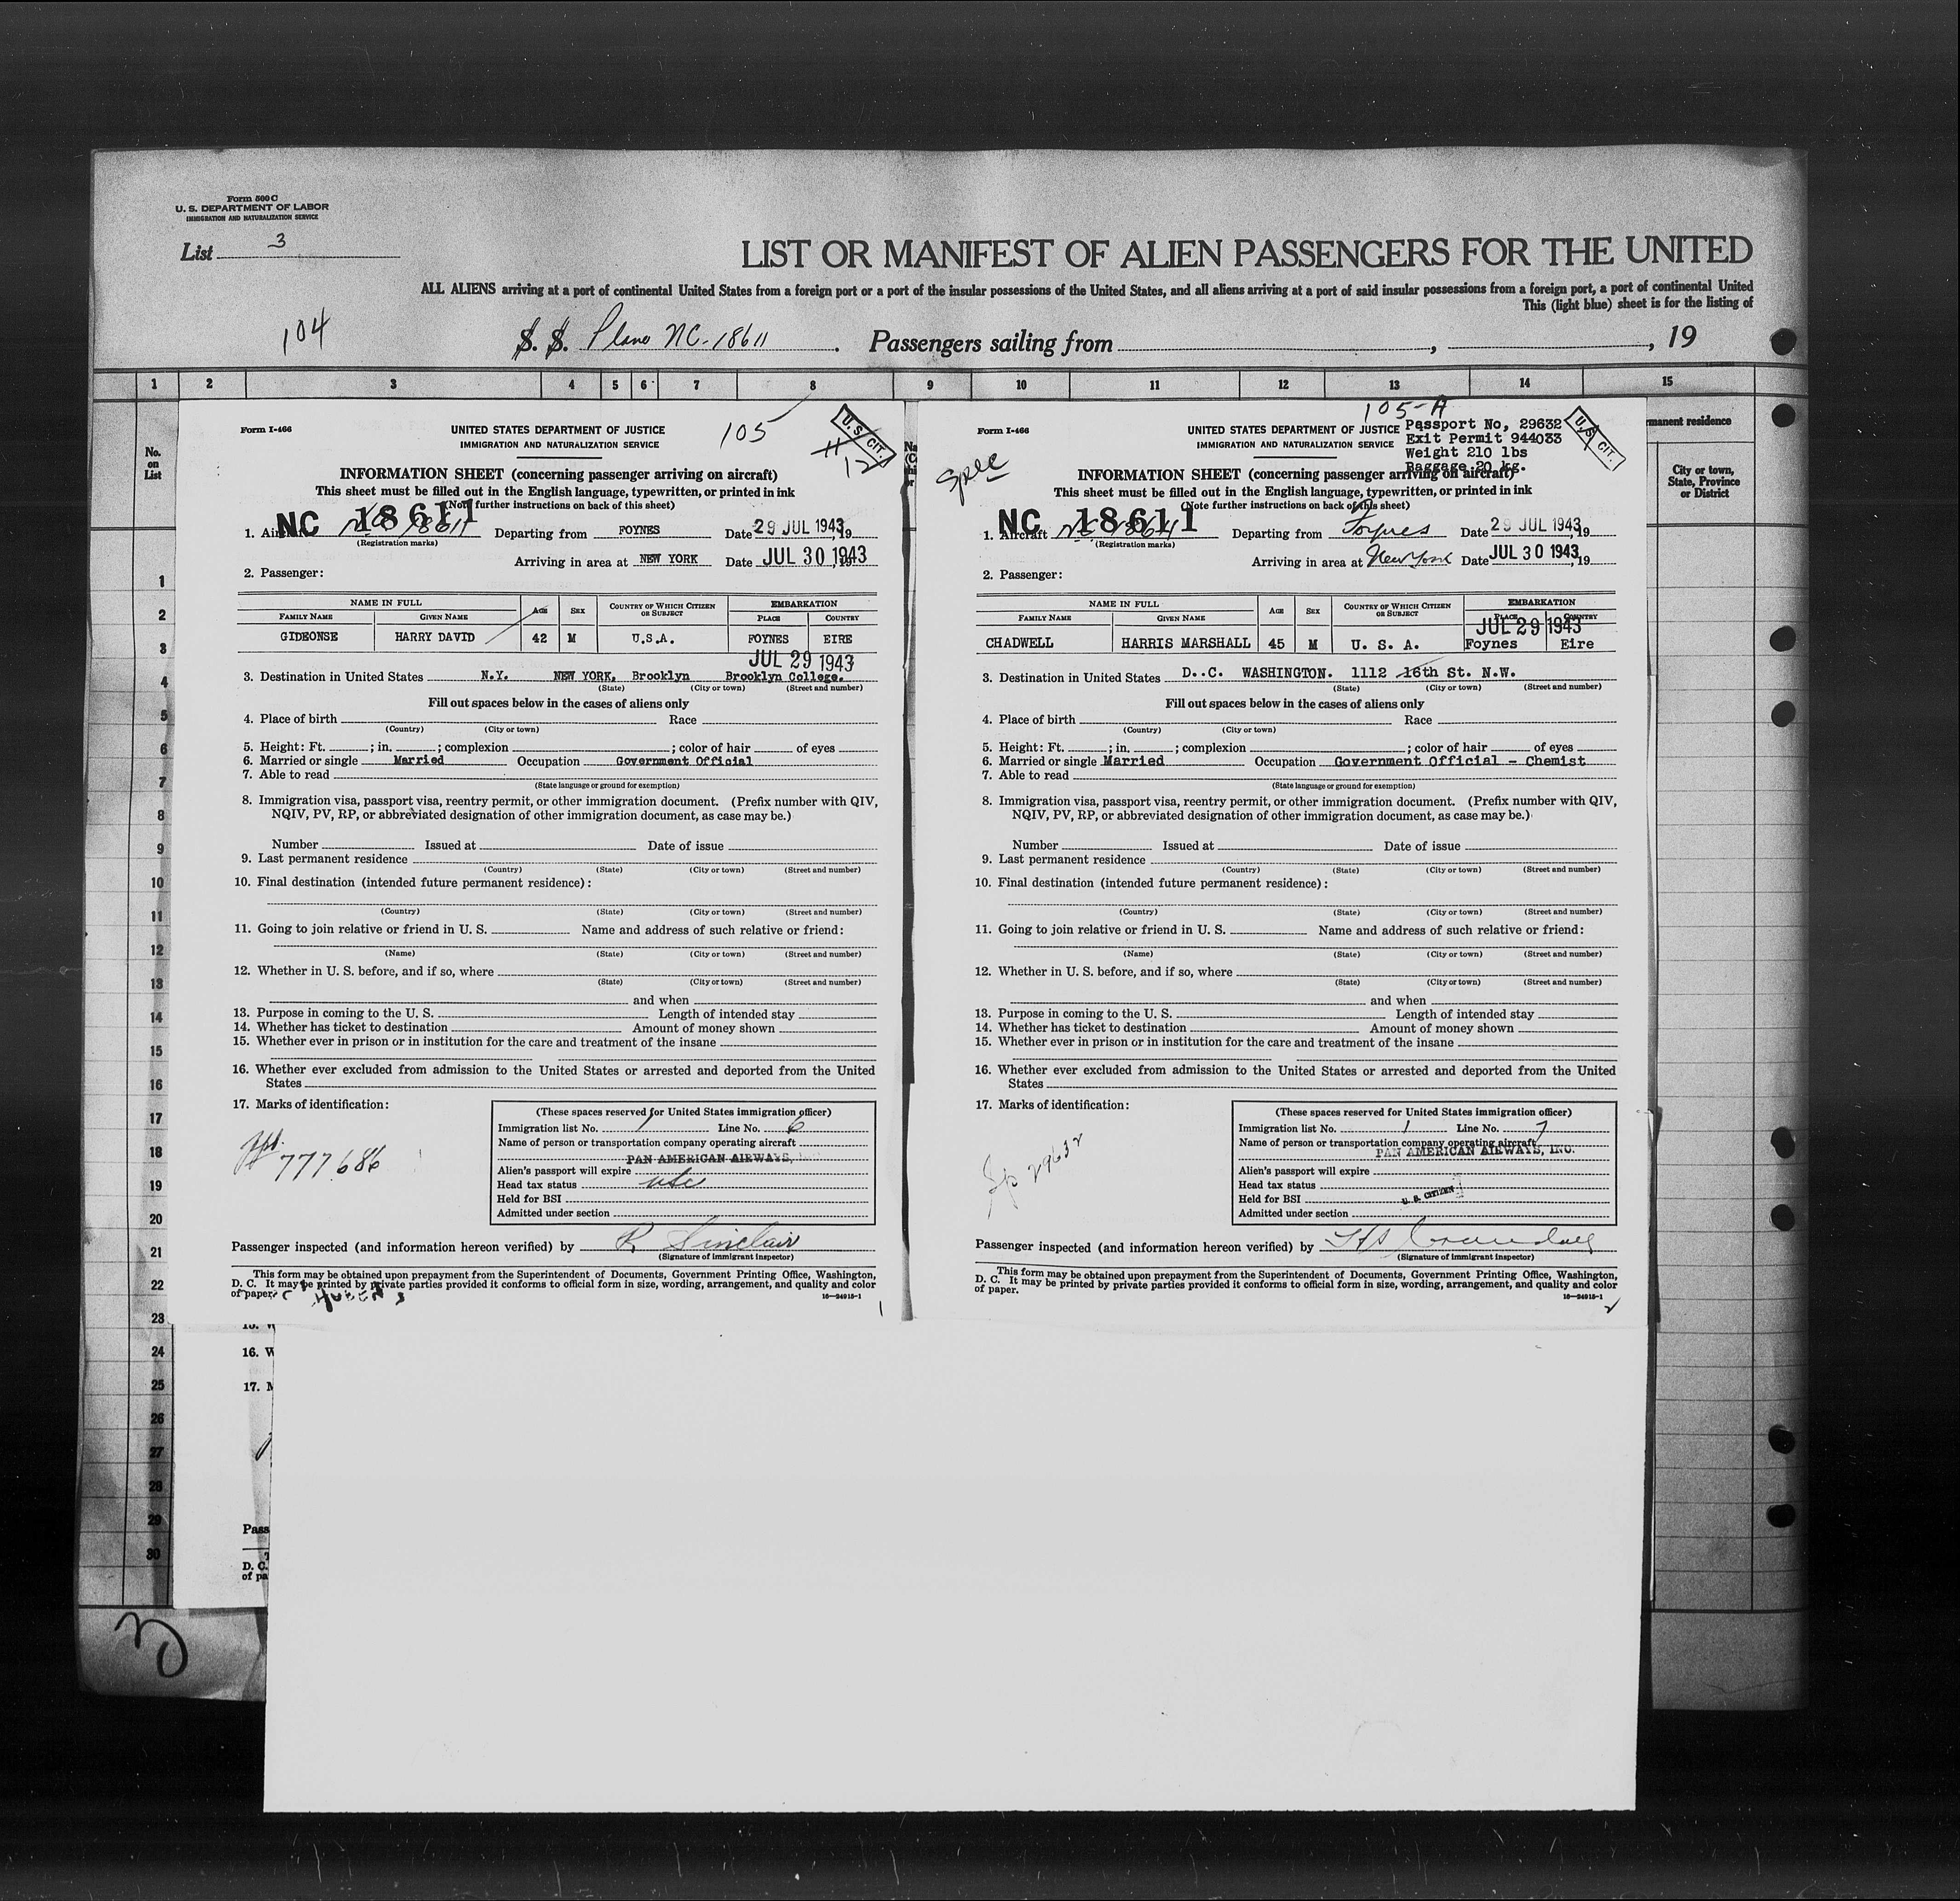 Form 500 C
U. S. DEPARTMENT OF LABOR
IMMIGRATION AND NATURALIZATION SERVICE
List 3
LIST OR MANIFEST OF ALIEN PASSENGERS FOR THE UNITED
ALL ALIENS arriving at a port of continental United States from a foreign port or a port of the insular possessions of the United States, and all aliens arriving at a port of said insular possessions from a foreign port, a port of continental United
This (light blue) sheet is for the listing of
104
S. S. Plane NC-18611. Passengers sailing from , , 19
1 2 3 4 5 6 7 8 9 10 11 12 13 14 15
No. on List
manent residence
City or town, State, Province or District
1
2
3
4
5
6
7
8
9
10
11
12
13
14
15
16
17
18
19
20
21
22
23
24
25
26
27
28
29
30
Form I-466
UNITED STATES DEPARTMENT OF JUSTICE
IMMIGRATION AND NATURALIZATION SERVICE
105
U.S. CIT.
11
12
INFORMATION SHEET (concerning passenger arriving on aircraft)
This sheet must be filled out in the English language, typewritten, or printed in ink
(Note further instructions on back of this sheet)
NC 18611
1. Aircraft NC 18611 Departing from FOYNES Date 29 JUL 1943, 19
(Registration marks)
Arriving in area at NEW YORK Date JUL 30 1943, 19
2. Passenger:
NAME IN FULL
FAMILY NAME GIVEN NAME AGE SEX COUNTRY OF WHICH CITIZEN OR SUBJECT EMBARKATION PLACE COUNTRY
GIDEONSE HARRY DAVID 42 M U.S.A. FOYNES EIRE
JUL 29 1943
3. Destination in United States N.Y. NEW YORK, Brooklyn Brooklyn College.
(State) (City or town) (Street and number)
Fill out spaces below in the cases of aliens only
4. Place of birth Race
(Country) (City or town)
5. Height: Ft. ; in. ; complexion ; color of hair of eyes
6. Married or single Married Occupation Government Official
7. Able to read
(State language or ground for exemption)
8. Immigration visa, passport visa, reentry permit, or other immigration document. (Prefix number with QIV,
NQIV, PV, RP, or abbreviated designation of other immigration document, as case may be.)
Number Issued at Date of issue
9. Last permanent residence
(Country) (State) (City or town) (Street and number)
10. Final destination (intended future permanent residence):
(Country) (State) (City or town) (Street and number)
11. Going to join relative or friend in U. S. Name and address of such relative or friend:
(Name) (State) (City or town) (Street and number)
12. Whether in U. S. before, and if so, where
(State) (City or town) (Street and number)
and when
13. Purpose in coming to the U. S. Length of intended stay
14. Whether has ticket to destination Amount of money shown
15. Whether ever in prison or in institution for the care and treatment of the insane
16. Whether ever excluded from admission to the United States or arrested and deported from the United
States
17. Marks of identification:
777686
(These spaces reserved for United States immigration officer)
Immigration list No. 1 Line No. 6
Name of person or transportation company operating aircraft
PAN AMERICAN AIRWAYS, INC.
Alien's passport will expire
Head tax status usc
Held for BSI
Admitted under section
Passenger inspected (and information hereon verified) by R. Sinclair
(Signature of immigrant inspector)
This form may be obtained upon prepayment from the Superintendent of Documents, Government Printing Office, Washington,
D. C. It may be printed by private parties provided it conforms to official form in size, wording, arrangement, and quality and color
of paper.
16—24915-1
1
Form I-466
UNITED STATES DEPARTMENT OF JUSTICE
IMMIGRATION AND NATURALIZATION SERVICE
105-A
Passport No, 29632
Exit Permit 944033
Weight 210 lbs
Baggage 20 kg.
U.S. CIT.
Spec
INFORMATION SHEET (concerning passenger arriving on aircraft)
This sheet must be filled out in the English language, typewritten, or printed in ink
(Note further instructions on back of this sheet)
NC 18611
1. Aircraft NC 18611 Departing from Foynes Date 29 JUL 1943, 19
(Registration marks)
Arriving in area at New York Date JUL 30 1943, 19
2. Passenger:
NAME IN FULL
FAMILY NAME GIVEN NAME AGE SEX COUNTRY OF WHICH CITIZEN OR SUBJECT EMBARKATION PLACE COUNTRY
JUL 29 1943
CHADWELL HARRIS MARSHALL 45 M U. S. A. Foynes Eire
3. Destination in United States D..C. WASHINGTON. 1112 16th St. N.W.
(State) (City or town) (Street and number)
Fill out spaces below in the cases of aliens only
4. Place of birth Race
(Country) (City or town)
5. Height: Ft. ; in. ; complexion ; color of hair of eyes
6. Married or single Married Occupation Government Official - Chemist
7. Able to read
(State language or ground for exemption)
8. Immigration visa, passport visa, reentry permit, or other immigration document. (Prefix number with QIV,
NQIV, PV, RP, or abbreviated designation of other immigration document, as case may be.)
Number Issued at Date of issue
9. Last permanent residence
(Country) (State) (City or town) (Street and number)
10. Final destination (intended future permanent residence):
(Country) (State) (City or town) (Street and number)
11. Going to join relative or friend in U. S. Name and address of such relative or friend:
(Name) (State) (City or town) (Street and number)
12. Whether in U. S. before, and if so, where
(State) (City or town) (Street and number)
and when
13. Purpose in coming to the U. S. Length of intended stay
14. Whether has ticket to destination Amount of money shown
15. Whether ever in prison or in institution for the care and treatment of the insane
16. Whether ever excluded from admission to the United States or arrested and deported from the United
States
17. Marks of identification:
Sp 29632
(These spaces reserved for United States immigration officer)
Immigration list No. 1 Line No. 7
Name of person or transportation company operating aircraft
PAN AMERICAN AIRWAYS, INC.
Alien's passport will expire
Head tax status
Held for BSI U. S. CITIZEN
Admitted under section
Passenger inspected (and information hereon verified) by
(Signature of immigrant inspector)
This form may be obtained upon prepayment from the Superintendent of Documents, Government Printing Office, Washington,
D. C. It may be printed by private parties provided it conforms to official form in size, wording, arrangement, and quality and color
of paper.
16—24915-1
2
16. W
17. M
Pass
D. C.
of pa